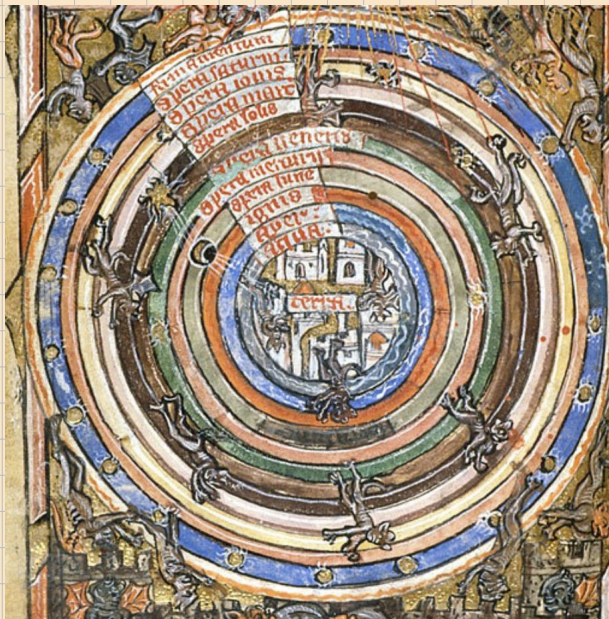 firmamentum
spera saturni:
spera iouis
spera marc
spera solis
spera ueneris
spera mercurij
spera lune
ignis
aer:
aqua:
terra: